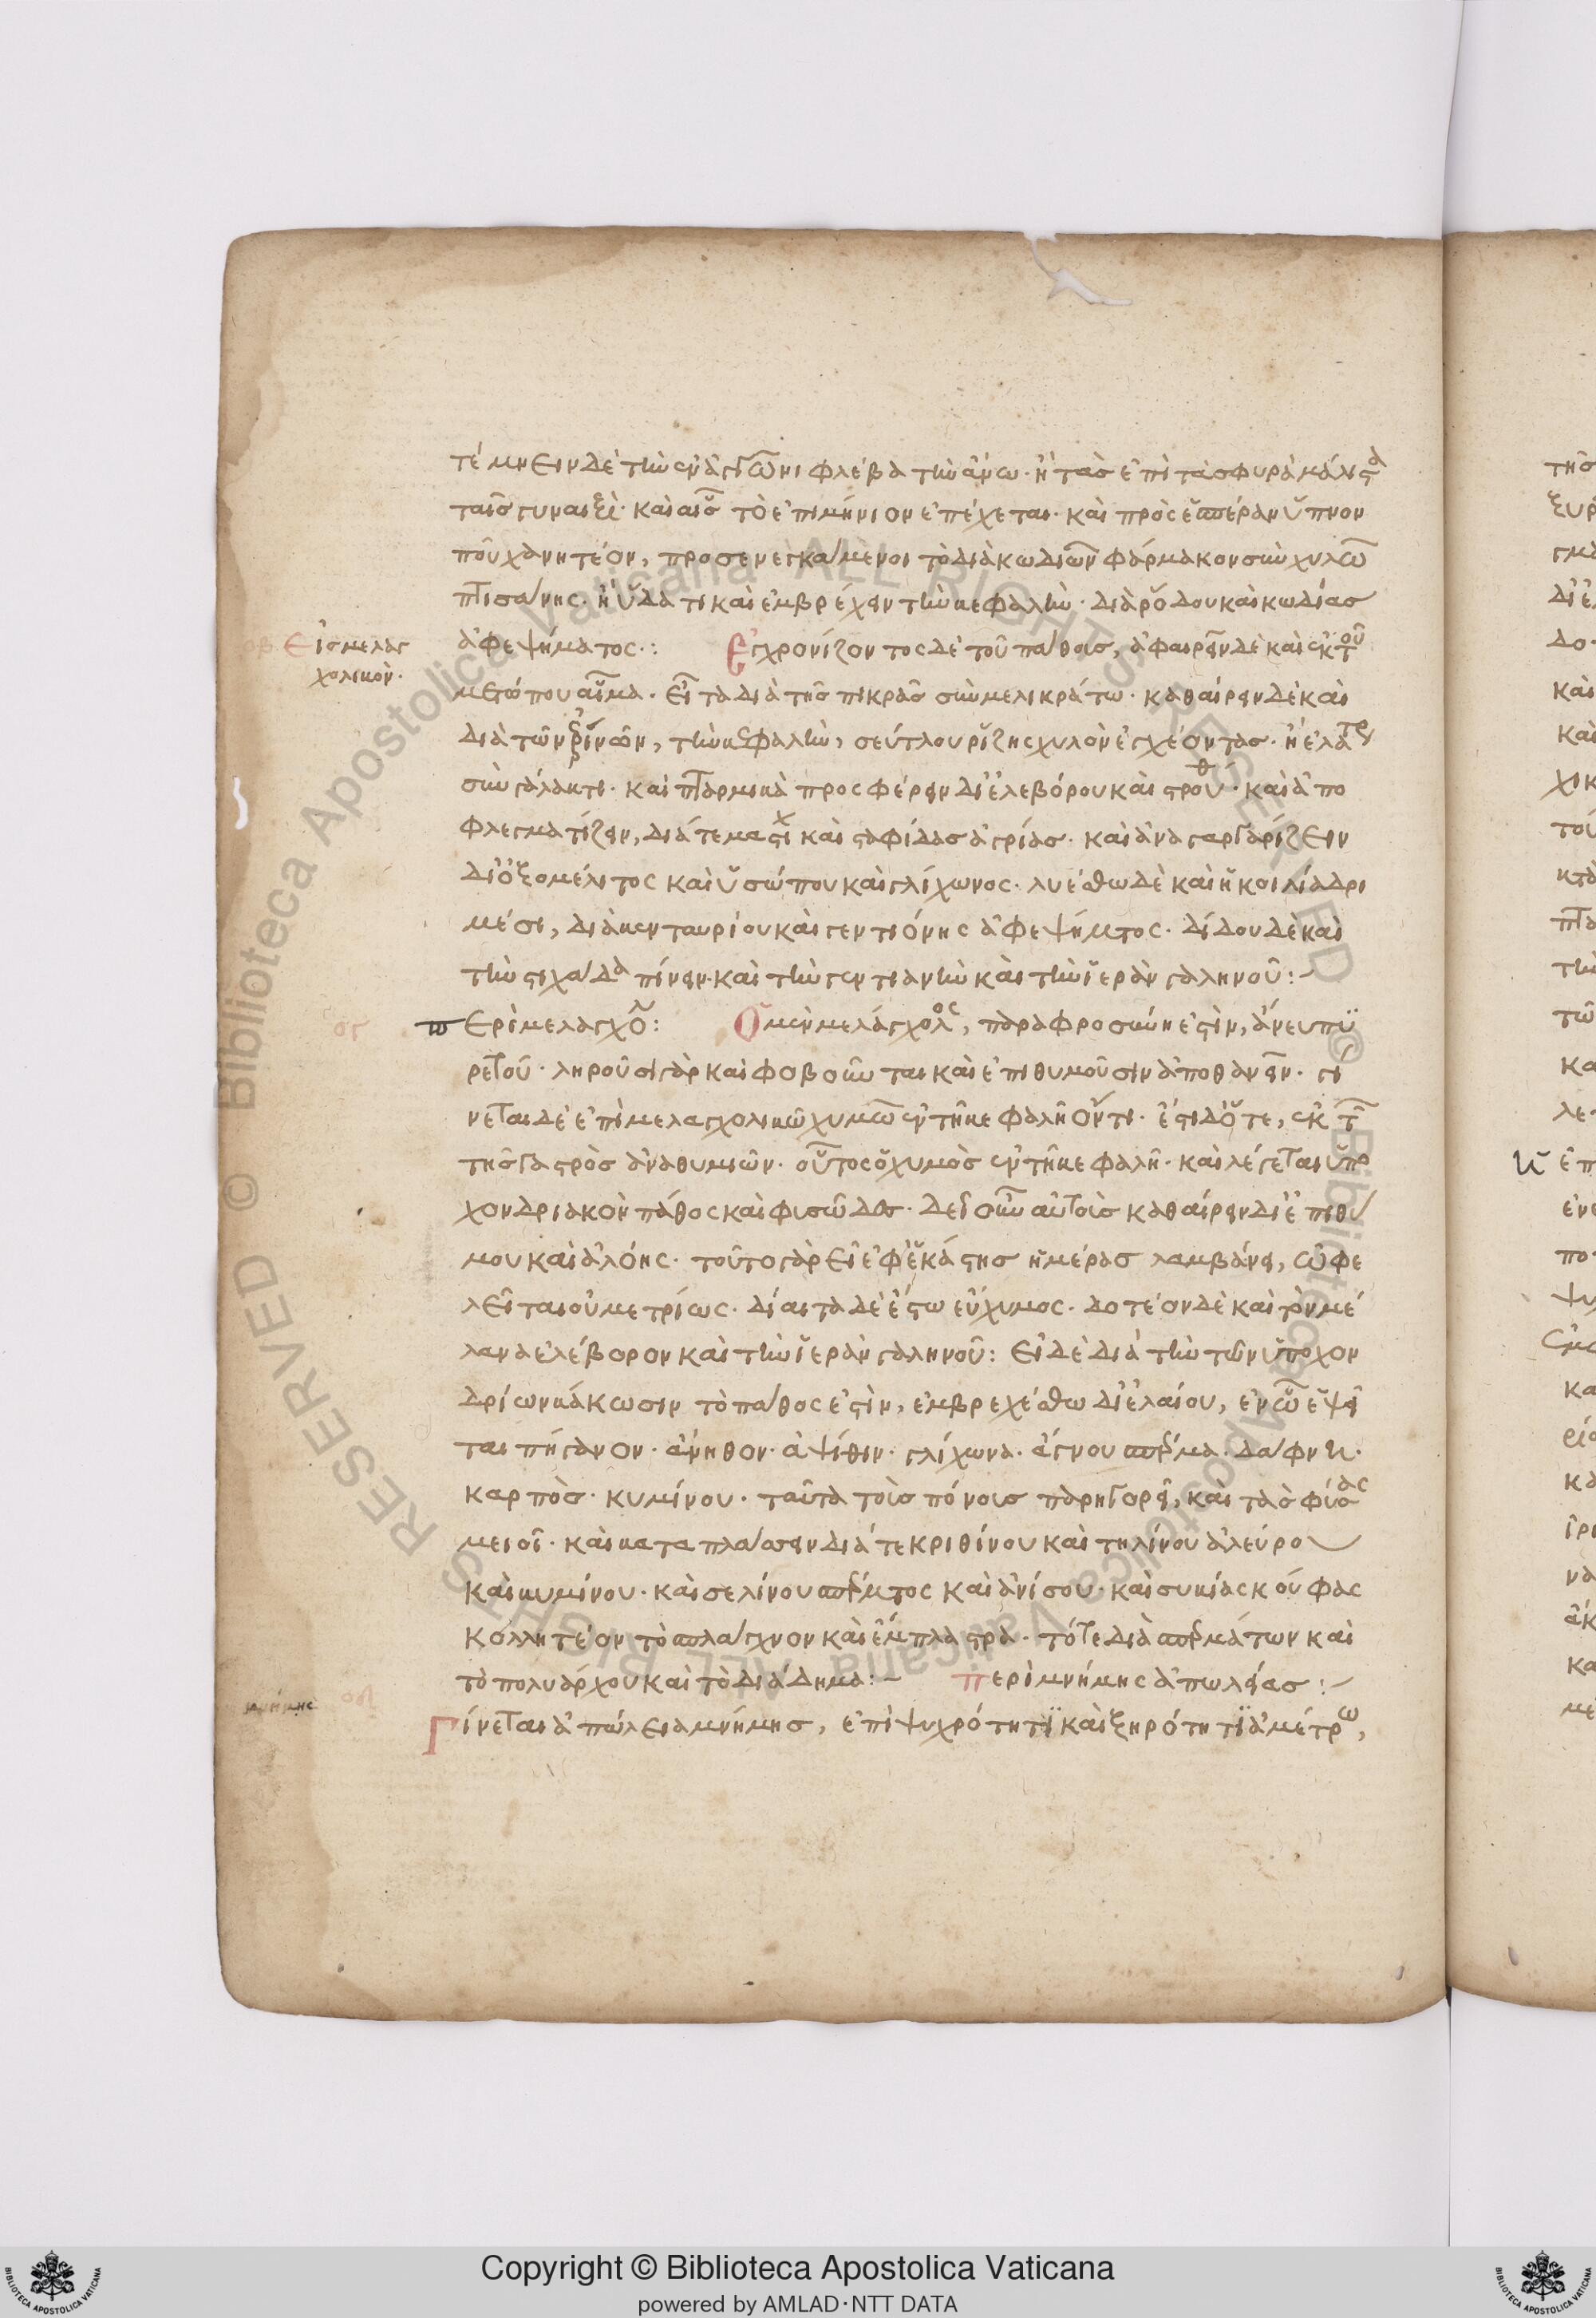 τέμνειν δὲ τὴν ἐν ἀγκῶνι φλέβα τὴν ἄνω· ἢ τὰς ἐπὶ τὰ σφυρὰ μάλιστα
ταῖς γυναιξὶ· καὶ αἷς τὸ ἐπιμήνιον ἐπέχεται· καὶ πρὸς ἑσπέραν ὕπνον
προσενεγκαμένοι τὸ διὰ κωδιῶν φάρμακον σὺν χυλῶ
πτισάνης· ἢ ὕδατι καὶ ἐμβρέχειν τὴν κεφαλὴν· διὰ ῥόδου καὶ κωδίας
ἀφεψήματος·: Ἐγχρονίζοντος δὲ τοῦ πάθους, ἀφαιρεῖν δὲ καὶ ἐκ τοῦ
Εἰς μελαγ
χολικόν·
μετώπου αἷμα· εἶτα διὰ τῆς πικρᾶς σὺν μελικράτω· καθαίρειν δὲ καὶ
διὰ τῶν ῥινῶν, τὴν κεφαλὴν, σεύτλου ῥίζης χυλὸν ἐγχέοντας· ἢ ἐλατηρ
σὺν γάλακτι· καὶ πταρμικὰ προσφέρειν δι ἐλεβόρου καὶ στρουθ· καὶ ἀπο
φλεγματίζειν, διά τε μαστίχ καὶ σταφίδας ἀγρίας· καὶ ἀναγαργαρίζειν
δι ὀξομέλιτος καὶ ὑσώπου καὶ γλίχωνος· λυέσθω δὲ καὶ ἡ κοιλία δρι
μέσι, διὰ κενταυρίου καὶ γεντιόνης ἀφεψήμτος· δίδου δὲ καὶ
τὴν στιχάδα πίνειν· καὶ τὴν γεντιανὴν καὶ τὴν ἱερὰν γαληνοῦ:~
Περὶ μελαγχο: Οἱ μὲν μελάγχολος, παραφροσύνη ἐστὶν, ἄνευ πυ
ρετοῦ· ληροῦσι γὰρ καὶ φοβοῦνται καὶ ἐπιθυμοῦσιν ἀποθανεῖν· γί
νεται δὲ ἐπὶ μελαγχολικῶ χυμῶ ἐν τῆ κεφαλῆ ὄντι· ἔστι δ ὅτε, ἐκ τ
τῆς γαστρὸς ἀναθυμιῶν· οὗτος ὁ χυμὸς ἐν τῆ κεφαλῆ· καὶ λέγεται ὑπο
χονδριακὸν πάθος καὶ φυσῶδες· δεῖ οὖν αὐτοῖς καθαίρειν δι ἐπιθύ
μου καὶ ἀλόης· τοῦτο γὰρ εἰ ἐφ ἑκάστης ἡμέρας λαμβάνει, ὠφε
λεῖται οὐ μετρίως· δίαιτα δὲ ἔστω εὔχυμος· δοτέον δὲ καὶ τὸν μέ
λανα ἐλέβορον καὶ τὴν ἱερὰν γαληνοῦ: εἰ δὲ διὰ τὴν τῶν ὑποχον
δρίων κάκωσιν τὸ πάθος ἐστὶν, ἐμβρεχέσθω δι ἐλαίου, ἐν ῶ ἕψει
ται πήγανον· ἄνηθον· ἀψίθιν· γλίχωνα· ἄγνου σπέρμα· δάφνη·
καρπὸς· κυμίνου· ταῦτα τοῖς πόνοις παρηγορεῖ, καὶ τὰς φύσας
μειοῖ· καὶ καταπλάσσειν διά τε κριθίνου καὶ τηλίνου ἀλεύρου
καὶ κυμίνου· καὶ σελίνου σπέρμτος καὶ ἀνίσου· καὶ συκίας κούφας
κολλητέον τὸ σπλάγχνον καὶ ἔμπλαστρα· τό τε διὰ σπερμάτων καὶ
τὸ πολυάρχου καὶ τὸ διάδημα:~ Περὶ μνήμης ἀπωλείας:~
μνήμης
Γίνεται ἀπώλεια μνήμης, ἐπὶ ψυχρότητι καὶ ξηρότητι ἀμέτρω,
Copyright © Biblioteca Apostolica Vaticana
powered by AMLAD·NTT DATA